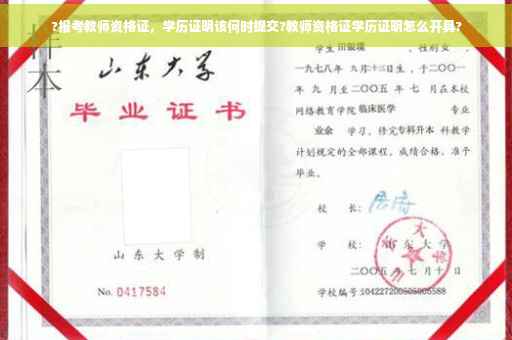 ?报考教师资格证，学历证明该何时提交?教师资格证学历证明怎么开具?
样本
山东大学
毕业证书
山东大学制
No. 0417584
学生 田银瑞 ，性别 女 ，
一九七八年 九月十二日生，于二〇〇一
年 九 月至二〇〇五 年 七 月在本校
网络教育学院 临床医学 专业
业余 学习，修完专科升本 科教学
计划规定的全部课程，成绩合格，准予
毕业。
校 长：
学 校：山东大学
二〇〇五 年 七 月 十 日
学校编号:104227200505005588